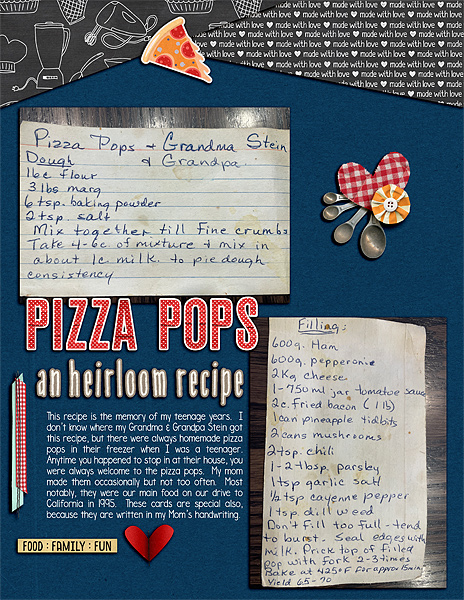 made with love ♥ made with love ♥ made with love ♥ made with love
Pizza Pops + Grandma Stein
& Grandpa
Dough
16c flour
3 lbs marg
6 tsp. baking powder
2 tsp. salt
Mix together till fine crumbs
Take 4-6c. of mixture + mix in
about 1c. milk. to pie dough
consistency
PIZZA POPS
an heirloom recipe
This recipe is the memory of my teenage years. I
don't know where my Grandma & Grandpa Stein got
this recipe, but there were always homemade pizza
pops in their freezer when I was a teenager.
Anytime you happened to stop in at their house, you
were always welcome to the pizza pops. My mom
made them occasionally but not too often. Most
notably, they were our main food on our drive to
California in 1995. These cards are special also,
because they are written in my Mom's handwriting.
FOOD : FAMILY : FUN
Filling:
600g. Ham
600g. pepperonie
2 Kg cheese
1-750 ml jar tomatoe sauce
2c. fried bacon (1 lb)
1 can pineapple tidbits
2 cans mushrooms
2 tsp. chili
1-2 tbsp. parsley
1 tsp garlic salt
1/2 tsp cayenne pepper
1 tsp dill weed
Don't fill too full - tend
to burst. Seal edges with
milk. Prick top of filled
pop with fork 2-3 times
Bake at 425°F for approx 15min
Yield 65-70